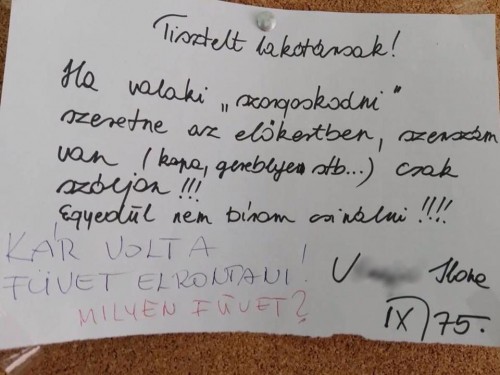 Tisztelt lakótársak!
Ha valaki „szorgoskodni"
szeretne az előkertben, szerszám
van (kapa, gereblye, stb...) csak
szóljon!!!
Egyedül nem bírom csinálni!!!!
KÁR VOLT A
FÜVET ELRONTANI!
MILYEN FÜVET?
V Ilona
IX/75.